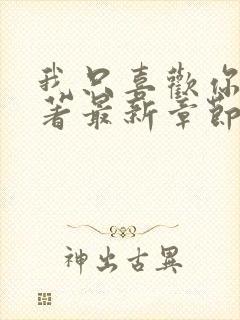 我只喜歡你
著最新章節
神出古異